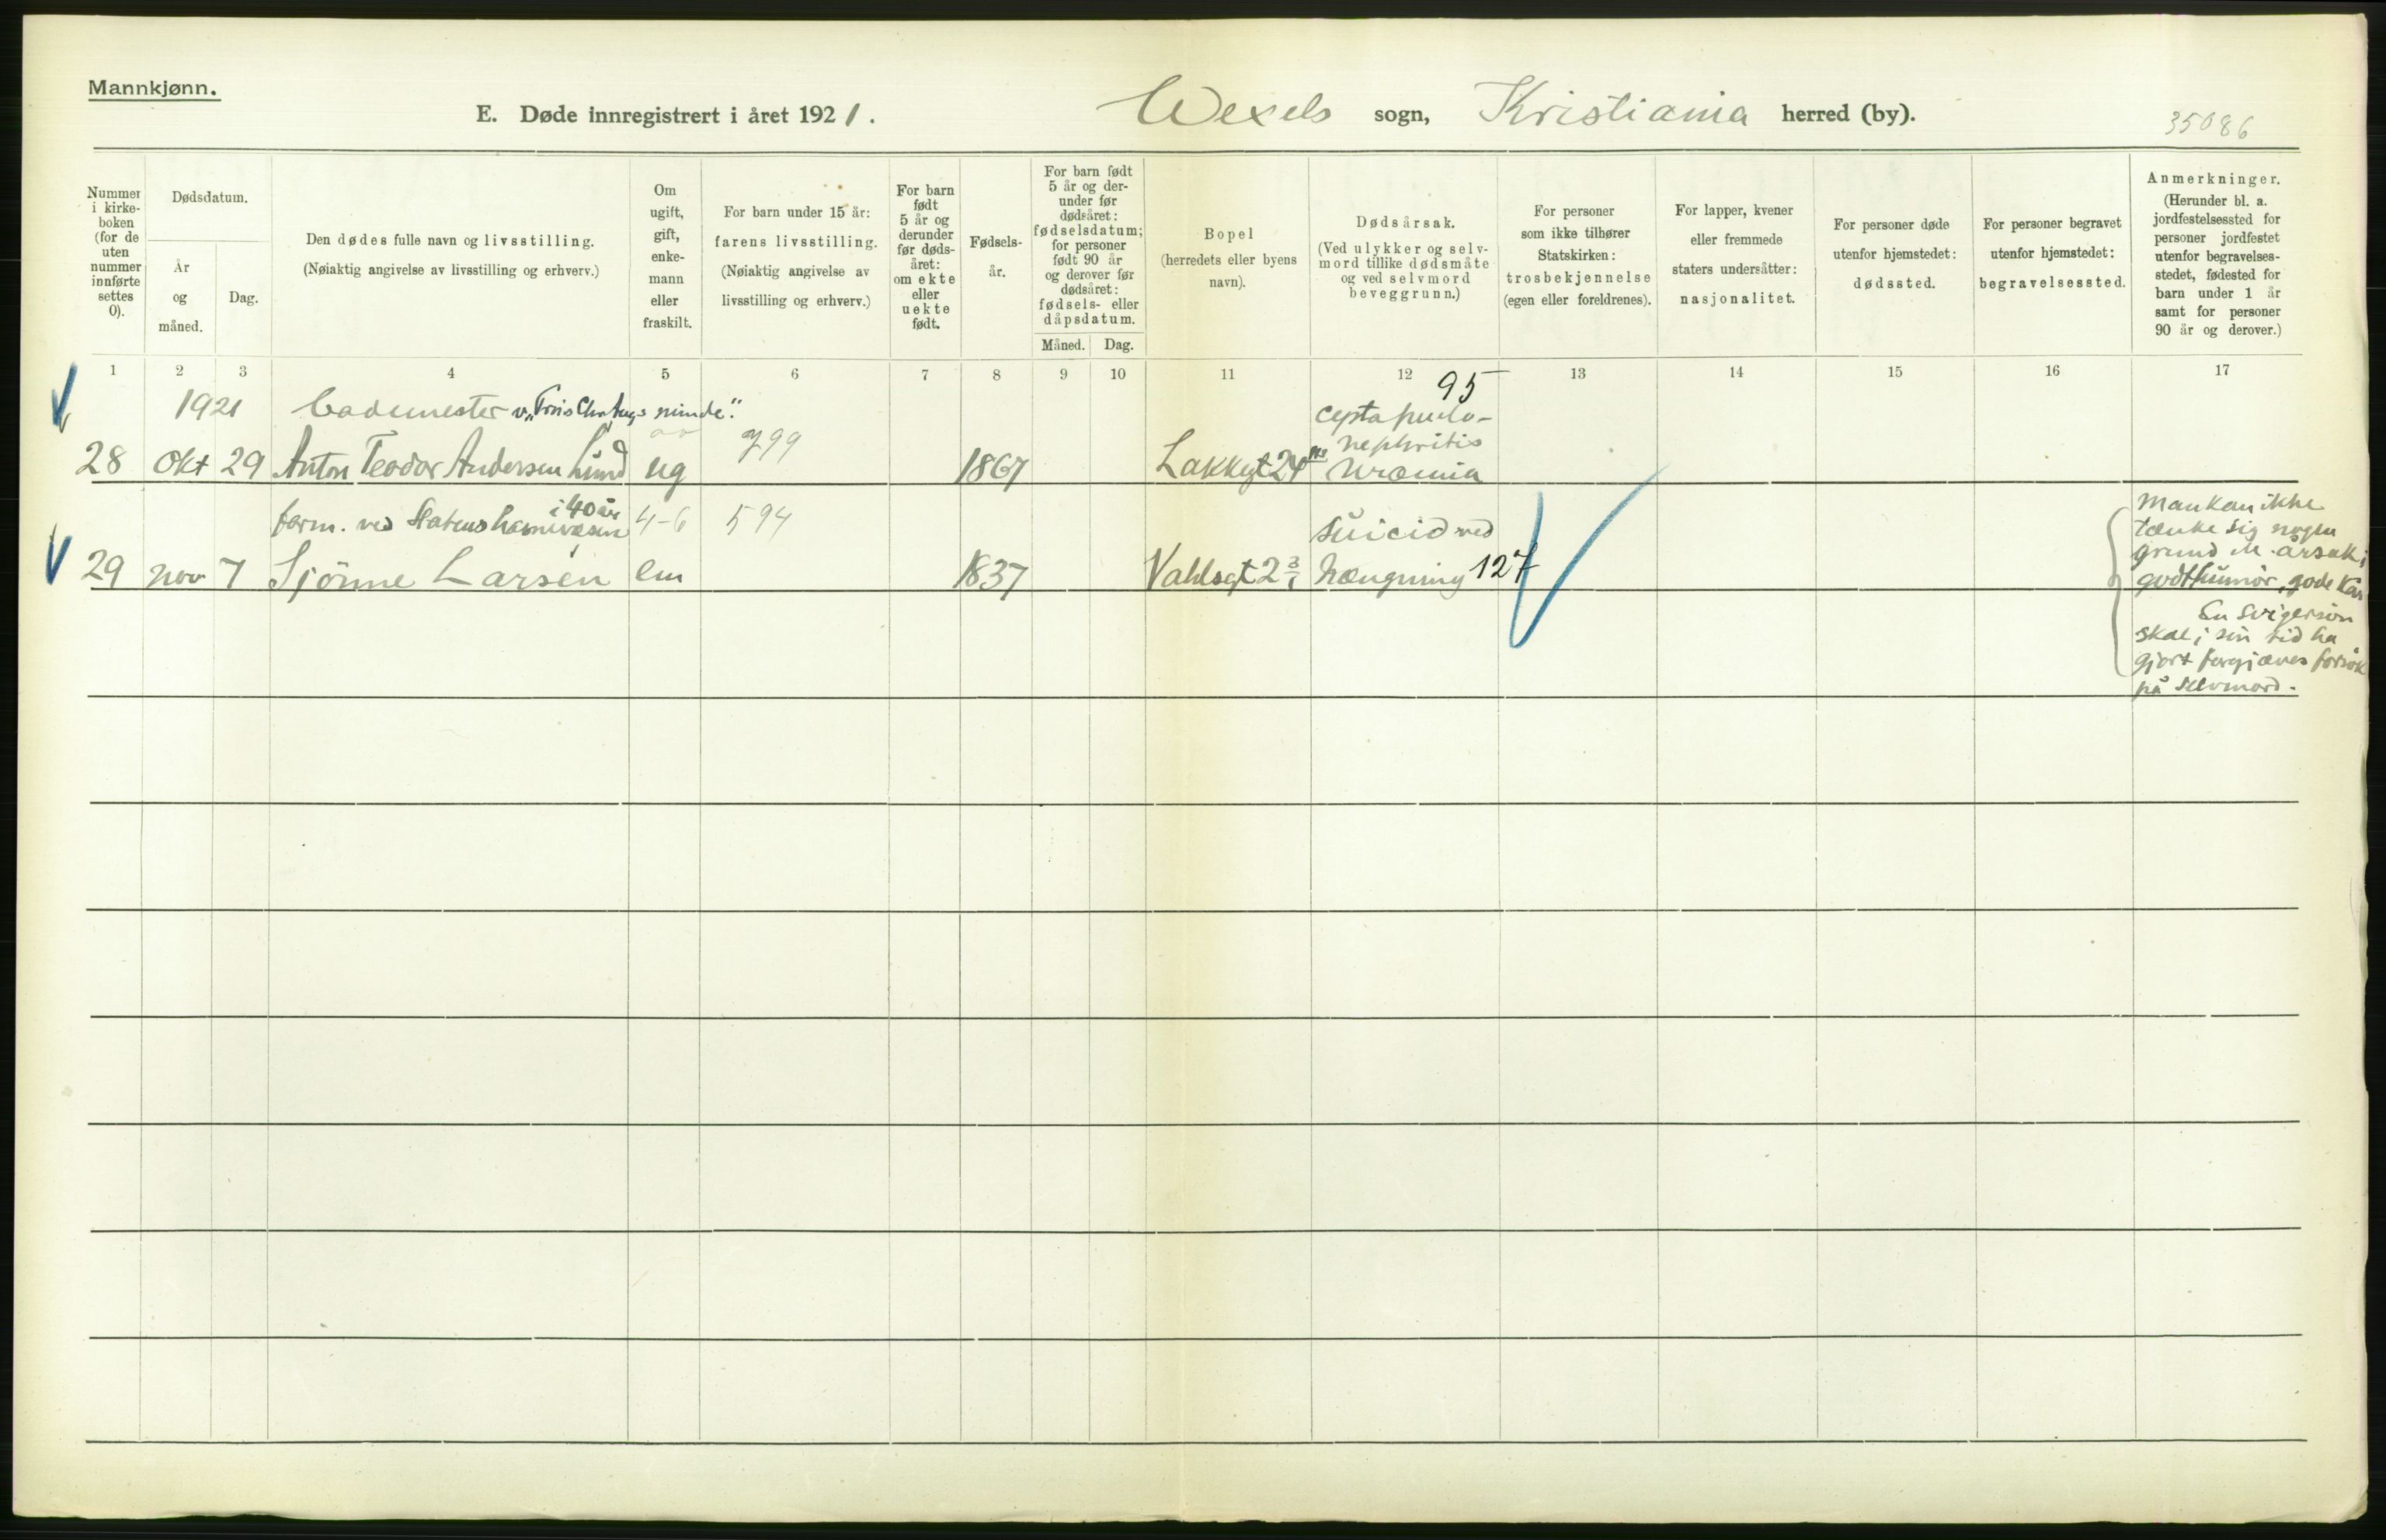 Mannkjønn.
E. Døde innregistrert i året 1921.
Wexels sogn, Kristiania herred (by).
35086
Nummer
i kirke-
boken
(for de
uten
nummer
innførte
settes
0).
Dødsdatum.
År
og
måned.
Dag.
Den dødes fulle navn og livsstilling.
(Nøiaktig angivelse av livsstilling og erhverv.)
Om
ugift,
gift,
enke-
mann
eller
fraskilt.
For barn under 15 år:
farens livsstilling.
(Nøiaktig angivelse av
livsstilling og erhverv.)
For barn
født
5 år og
derunder
før døds-
året:
om ekte
eller
uekte
født.
Fødsels-
år.
For barn født
5 år og der-
under før
dødsåret:
fødselsdatum;
for personer
født 90 år
og derover før
dødsåret:
fødsels- eller
dåpsdatum.
Måned.
Dag.
Bopel
(herredets eller byens
navn).
Dødsårsak.
(Ved ulykker og selv-
mord tillike dødsmåte
og ved selvmord
beveggrunn.)
For personer
som ikke tilhører
Statskirken:
trosbekjennelse
(egen eller foreldrenes).
For lapper, kvener
eller fremmede
staters undersåtter:
nasjonalitet.
For personer døde
utenfor hjemstedet:
dødssted.
For personer begravet
utenfor hjemstedet:
begravelsessted.
Anmerkninger.
(Herunder bl. a.
jordfestelsessted for
personer jordfestet
utenfor begravelses-
stedet, fødested for
barn under 1 år
samt for personer
90 år og derover.)
1 2 3 4 5 6 7 8 9 10 11 12 13 14 15 16 17
1921 bademester v. minde". 95
799 nephritis
28 okt 29 Anton Teodor Andersen Lund ug 1867 Lakkegt 24 uræmia
i 40 år
form. ved Statens havnevæsen 4-6 594 suicid ved
29 nov 7 Sjönne Larsen em 1837 Vahlsgt 2 hængning 127
Man kan ikke
tænke sig nogen
grund årsak;
godt humör, gode kår
En svigersön
skal i sin tid ha
gjort forgjæves forsök
på selvmord.